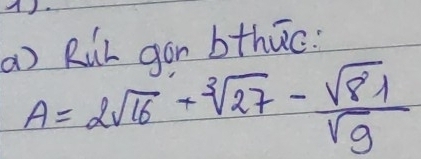 a) Rút gọn bthức:
A = 2√16 + ∛27 - √81/√9